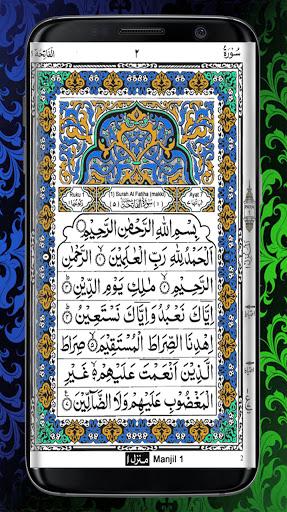 سُوْرَةُ ٢ اَلْفَاتِحَة ١
Ruku 1 (1) Surah Al Fatiha (makki) Ayat 7
بِسْمِ اللّٰهِ الرَّحْمٰنِ الرَّحِيْمِ
اَلْحَمْدُ لِلّٰهِ رَبِّ الْعٰلَمِيْنَ ۙ الرَّحْمٰنِ
الرَّحِيْمِ ۙ مٰلِكِ يَوْمِ الدِّيْنِ ؕ
اِيَّاكَ نَعْبُدُ وَاِيَّاكَ نَسْتَعِيْنُ ؕ
اِهْدِنَا الصِّرَاطَ الْمُسْتَقِيْمَ ۙ صِرَاطَ
الَّذِيْنَ اَنْعَمْتَ عَلَيْهِمْ ۙ غَيْرِ
الْمَغْضُوْبِ عَلَيْهِمْ وَلَا الضَّآلِّيْنَ
منزل ١ Manjil 1
2